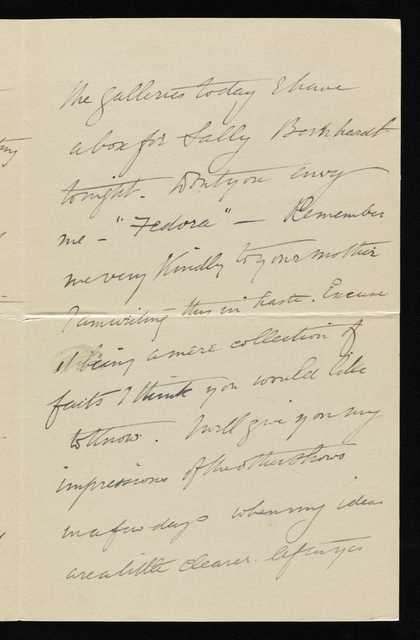 the galleries today I have
a box for Sally Bernhardt
tonight. Don't you envy
me - "Fedora" - Remember
me very kindly to your mother
I am writing this in haste. Excuse
it being a mere collection of
facts I think you would like
to know. I will give you my
impressions of the other shows
in a few days when my ideas
are a little clearer.